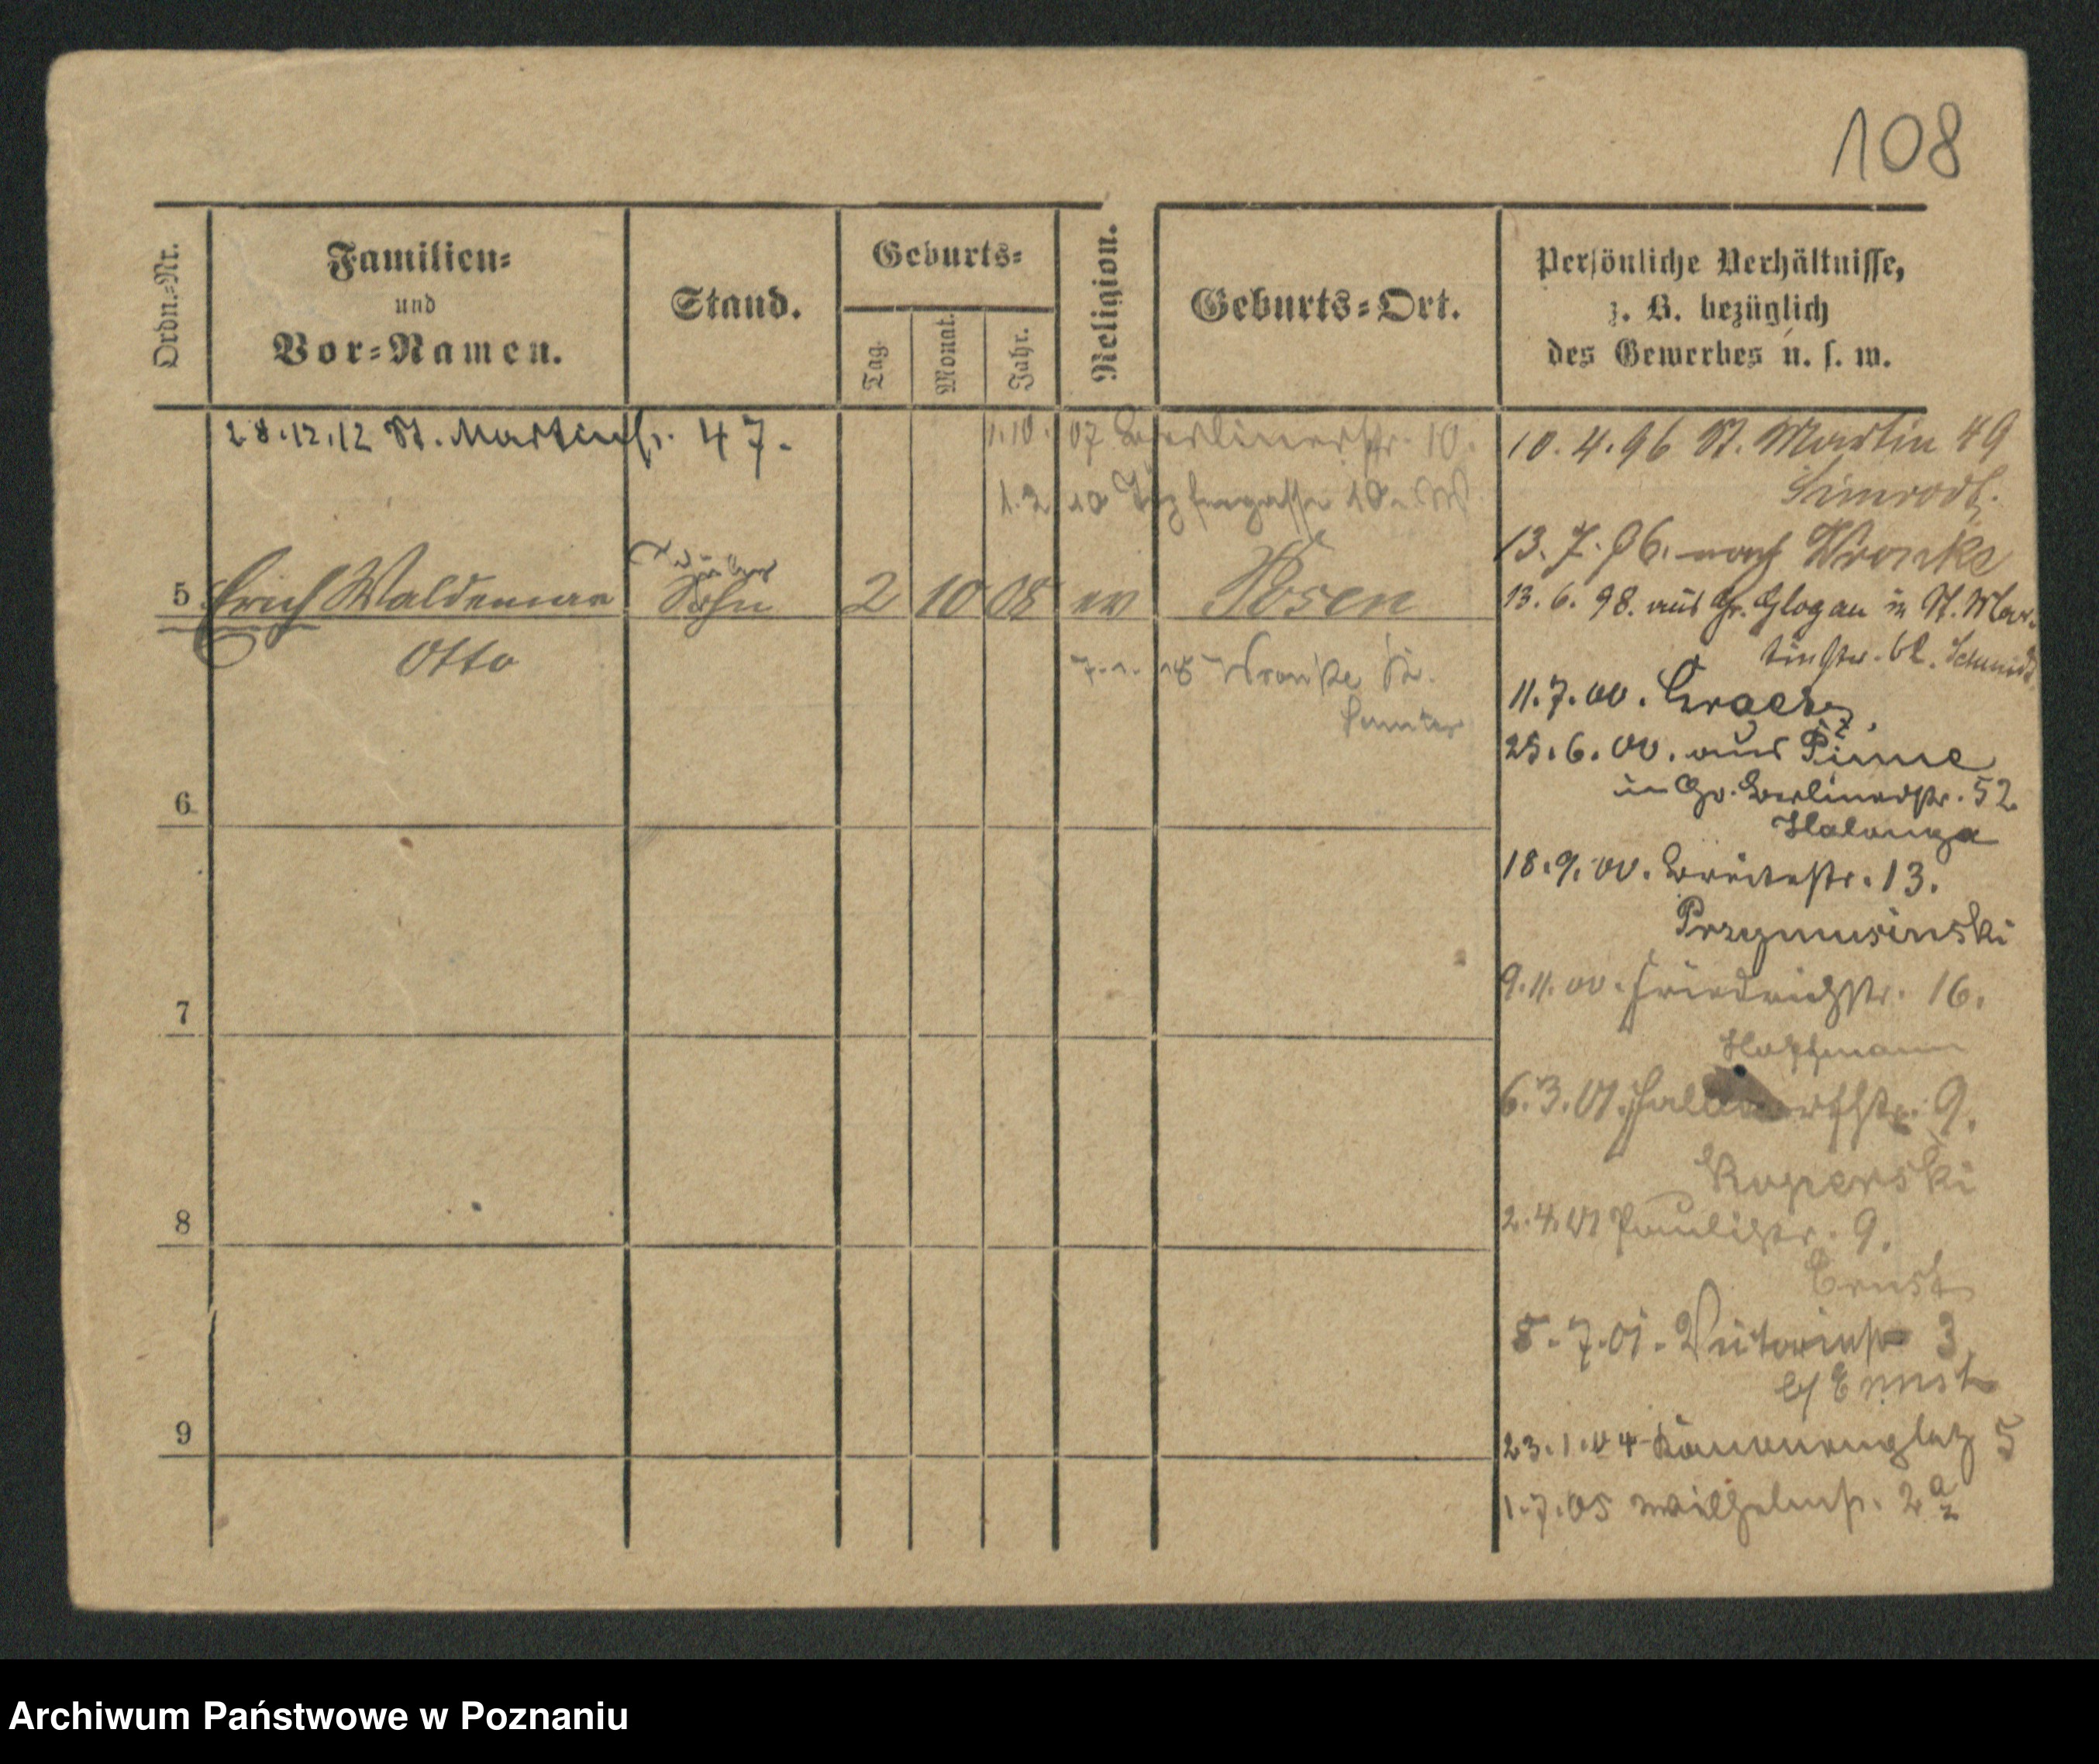 108
Ordn.-Nr.
Familien-
und
Vor-Namen.
Stand.
Geburts-
Tag.
Monat.
Jahr.
Religion.
Geburts-Ort.
Persönliche Verhältnisse,
z. B. bezüglich
des Gewerbes u. s. w.
28.12.12 St. Martinstr. 47.
1.10. 07 Berlinerstr. 10.
1.2 10
5 Erich Waldemar Sohn 2 10 08 ev Posen
Otto
Wronke Kr.
Samter
6
7
8
9
10.4.96 St. Martin 49
13.7.96. nach Wronke
13.6.98. aus Gr. Glogau in St. Mar-
tinstr. 62. Schmidt
11.7.00. Graetz,
25.6.00. aus Pinne
in Gr. Berlinerstr. 52
18.9.00. Breitestr. 13.
Przymusinski
9.11.00. Friedrichstr. 16.
Hoffmann
6.3.01. 9.
Koperski
2.4.01 Paulistr. 9.
Ernst
5.7.01. Victoriastr 3
b/ Ernst
23.1.04 Kanonenplatz 5
1.7.05 Wilhelmstr. 2
Archiwum Państwowe w Poznaniu